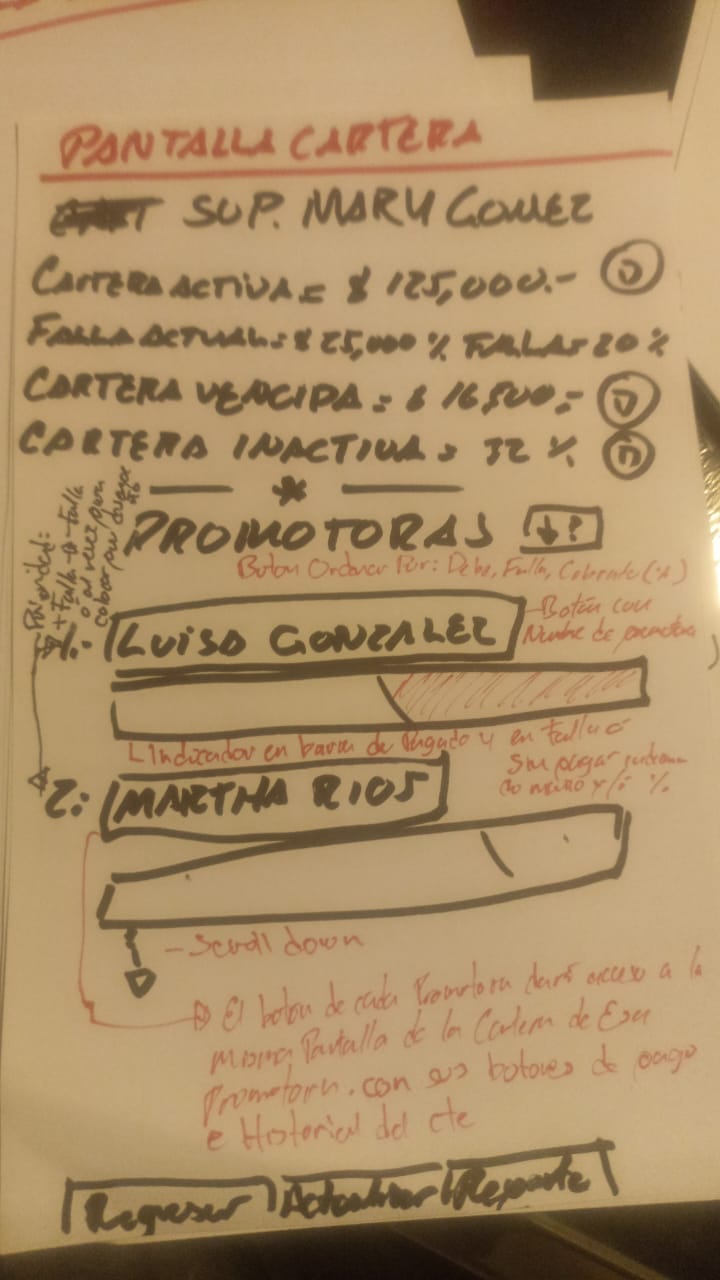 PANTALLA CARTERA
SUP. MARY GOMEZ
CARTERA ACTIVA = $ 125,000.-
FALLA ACTUAL = $ 25,000 % FALLA = 20 %
CARTERA VENCIDA = $ 16,500.-
CARTERA INACTIVA = 32 %
PROMOTORAS ↓?
Boton Ordenar Por: Debe, Falla, Cobranza (%)
Prioridad:
+ Falla to - Falla
o al revez para
colocar por
1.- LUISA GONZALEZ
Botón con
Nombre de promotora
Indicador en barra de Pagado y en falla o
sin pagar
y/o %
2: MARTHA RIOS
- Scroll down
El boton de cada Promotora dará acceso a la
misma Pantalla de la Cartera de Esa
Promotora. con sus botones de pago
e Historial del cte
Regresar Actualizar Reporte